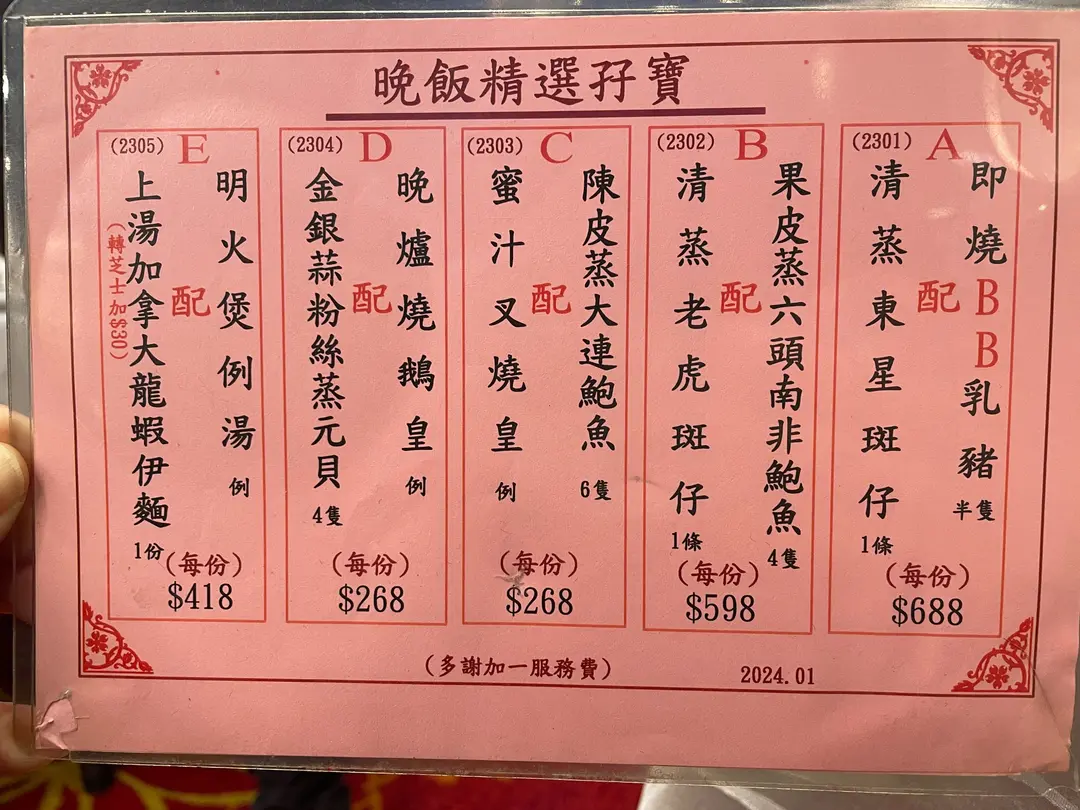 晚飯精選孖寶
(2301) A
即燒BB乳豬 半隻
配
清蒸東星斑仔 1條
(每份)
$688
(2302) B
果皮蒸六頭南非鮑魚 4隻
配
清蒸老虎斑仔 1條
(每份)
$598
(2303) C
陳皮蒸大連鮑魚 6隻
配
蜜汁叉燒皇 例
(每份)
$268
(2304) D
晚爐燒鵝皇 例
配
金銀蒜粉絲蒸元貝 4隻
(每份)
$268
(2305) E
明火煲例湯 例
配
上湯加拿大龍蝦伊麵 1份
(轉芝士加$30)
(每份)
$418
(多謝加一服務費)
2024.01